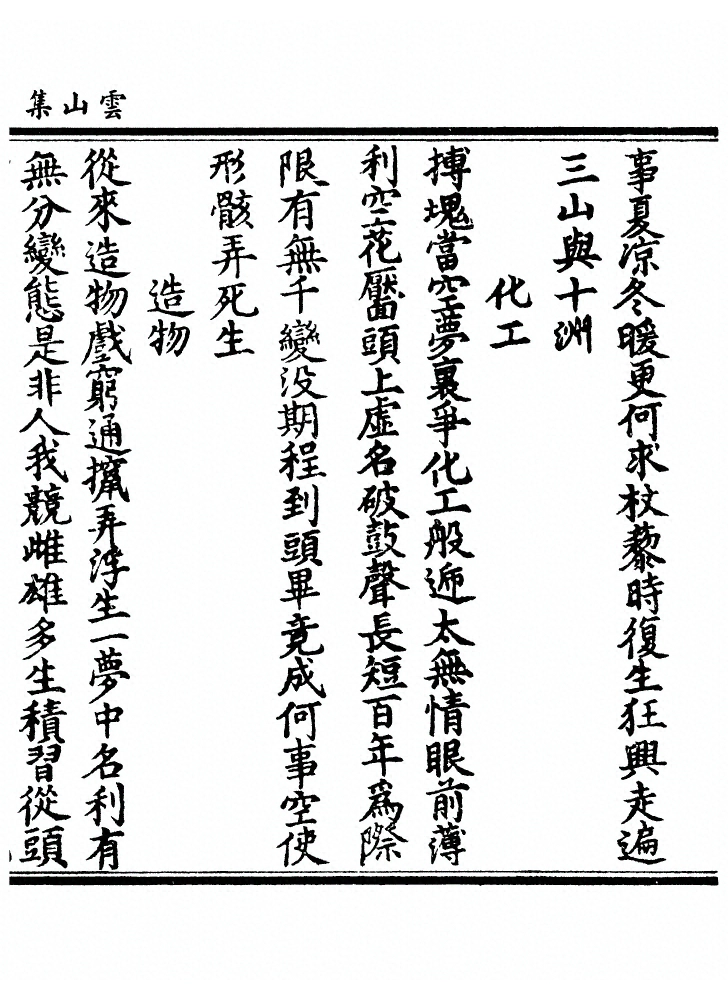 雲山集
事夏凉冬暖更何求杖藜時復生狂興走遍
三山與十洲
化工
摶塊當空夢裏爭化工般遞太無情眼前薄
利空花靨頭上虛名破鼓聲長短百年爲際
限有無千變没期程到頭畢竟成何事空使
形骸弄死生
造物
從來造物戲窮通攛弄浮生一夢中名利有
無分變態是非人我競雌雄多生積習從頭